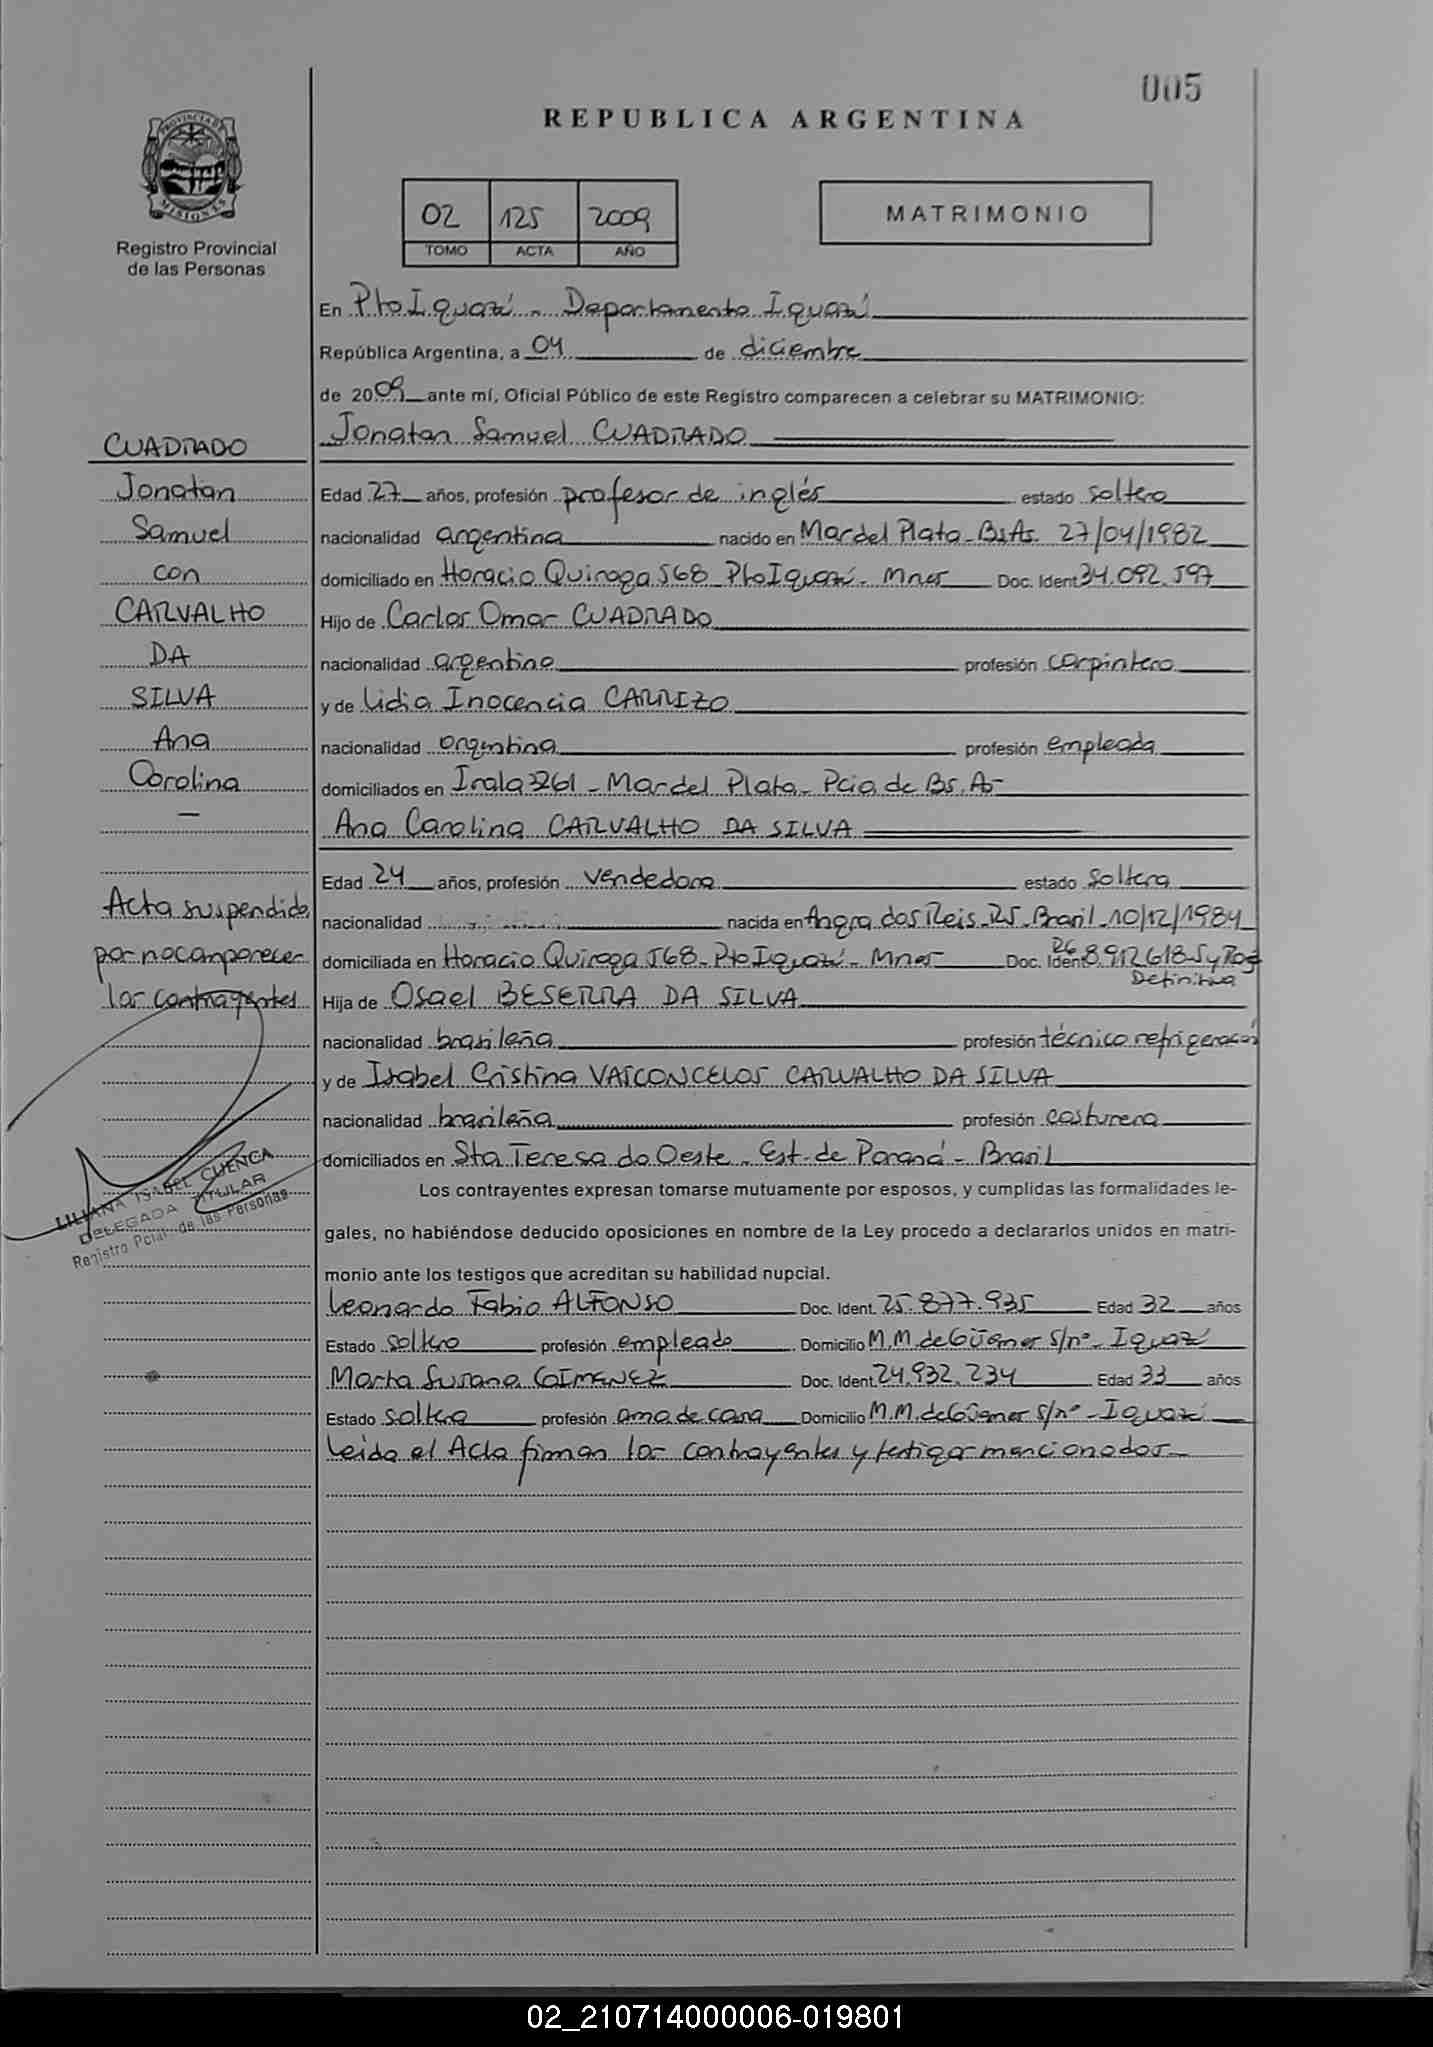 005
REPUBLICA ARGENTINA
PROVINCIA DE
MISIONES
Registro Provincial
de las Personas
02 125 2009
TOMO ACTA AÑO
MATRIMONIO
En Pto Iguazú - Departamento Iguazú
República Argentina, a 04 de diciembre
de 2009 ante mí, Oficial Público de este Registro comparecen a celebrar su MATRIMONIO:
Jonatan Samuel CUADRADO
Edad 27 años, profesión profesor de inglés estado soltero
nacionalidad argentina nacido en Mar del Plata - Bs As. 27/04/1982
domiciliado en Horacio Quiroga 568 Pto Iguazú - Mnes Doc. Ident 34.092.597
Hijo de Carlos Omar CUADRADO
nacionalidad argentina profesión carpintero
y de Lidia Inocencia CARRIZO
nacionalidad argentina profesión empleada
domiciliados en Irala 3261 - Mar del Plata - Pcia de Bs. As-
Ana Carolina CARVALHO DA SILVA
Edad 24 años, profesión vendedora estado soltera
nacionalidad nacida en Angra dos Reis - RJ - Brasil - 10/12/1984
domiciliada en Horacio Quiroga 568 - Pto Iguazú - Mnes Doc. Ident RG 8.912.618-5 y
Definitiva
Hija de Osael BESERRA DA SILVA
nacionalidad brasileña profesión técnico refrigeración
y de Isabel Cristina VASCONCELOS CARVALHO DA SILVA
nacionalidad brasileña profesión costurera
domiciliados en Sta Teresa do Oeste - Est. de Paraná - Brasil
Los contrayentes expresan tomarse mutuamente por esposos, y cumplidas las formalidades le-
gales, no habiéndose deducido oposiciones en nombre de la Ley procedo a declararlos unidos en matri-
monio ante los testigos que acreditan su habilidad nupcial.
Leonardo Fabio ALFONSO Doc. Ident. 25.877.935 Edad 32 años
Estado soltero profesión empleado Domicilio M.M. de Güemes s/nº - Iguazú
Marta Susana GIMENEZ Doc. Ident. 24.932.234 Edad 33 años
Estado soltera profesión ama de casa Domicilio M.M. de Güemes s/nº - Iguazú
Leída el Acta firman los contrayentes y testigos mencionados -
CUADRADO
Jonatan
Samuel
con
CARVALHO
DA
SILVA
Ana
Carolina
—
Acta suspendida
por no comparecer
los contrayentes
LILIANA ISABEL CUENCA
DELEGADA TITULAR
Registro Pcial. de las Personas
02_210714000006-019801